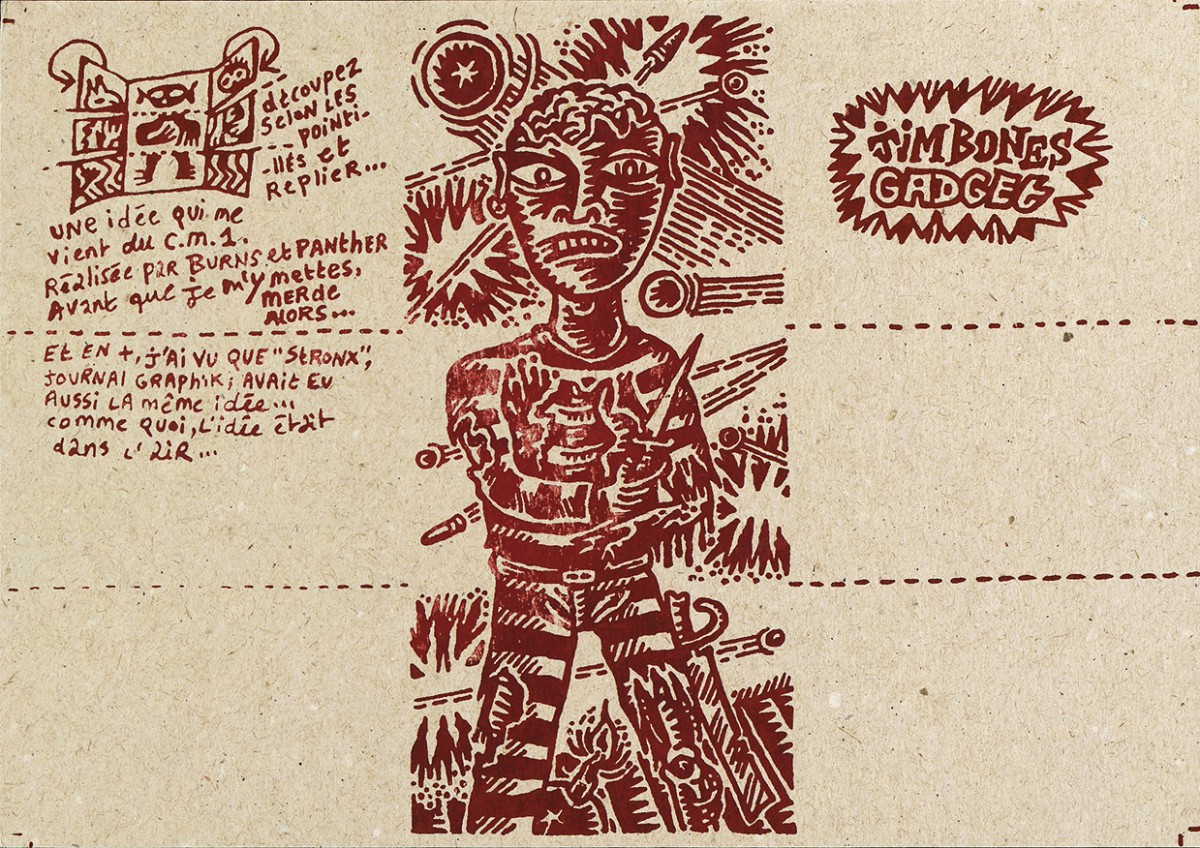 découpez
selon LES
pointi-
-llés et
Replier...
une idée qui me
vient du C.M.1.
Réalisée par BURNS et PANTHER
Avant que je m'y mettes,
MERde
ALORS...
Et EN +, j'AI VU QUE "StRONX",
JOURNAl GRAPhiK; AVAit EU
AUSSI LA même idée...
comme quoi, L'idée était
dans l'AiR...
jiM BONES
GADGEt